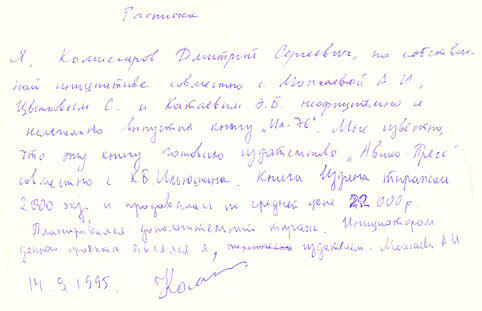 Расписка
Я, Комиссаров Дмитрий Сергеевич, по собствен-
ной инициативе совместно с Можаевой А.И,
Цветковым С. и Катаевым Э.Б. неофициально и
нелегально выпустил книгу „Ил-76". Мне известно,
что эту книгу готовило издательство „Авико-Пресс"
совместно с КБ Ильюшина. Книга издана тиражом
2000 экз. и продавалась по средней цене 22 000 р.
Планировался дополнительный тираж. Инициатором
данного проекта являлся я, издателем. Можаева А.И.
14.9.1995.